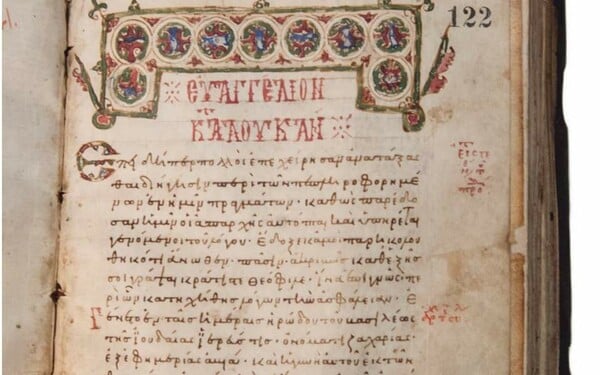 122
ΕΥΑΓΓΕΛΙΟΝ
ΚΑΤ ΛΟΥΚΑΝ
Ἐπειδήπερ πολλοὶ ἐπεχείρησαν ἀνατάξασ
θαι διήγησιν περὶ τῶν πεπληροφορημέ
νων ἐν ἡμῖν πραγμάτων· καθὼς παρέδο
σαν ἡμῖν οἱ ἀπαρχῆς αὐτόπται καὶ ὑπηρέται
γενόμενοι τοῦ λόγου· ἔδοξε κἀμοὶ παρηκολου
θηκότι ἄνωθεν πᾶσιν ἀκριβῶς καθεξῆς
σοι γράψαι κράτιστε Θεόφιλε· ἵνα ἐπιγνῷς περὶ
ὧν κατηχήθης λόγων τὴν ἀσφάλειαν· Ἐ
γένετο ἐν ταῖς ἡμέραις Ἡρώδου τοῦ βασιλέως
τῆς Ἰουδαίας ἱερεύς τις ὀνόματι Ζαχαρίας
ἐξ ἐφημερίας ἀβιά· καὶ ἡ γυνὴ αὐτοῦ ἐκ τῶν